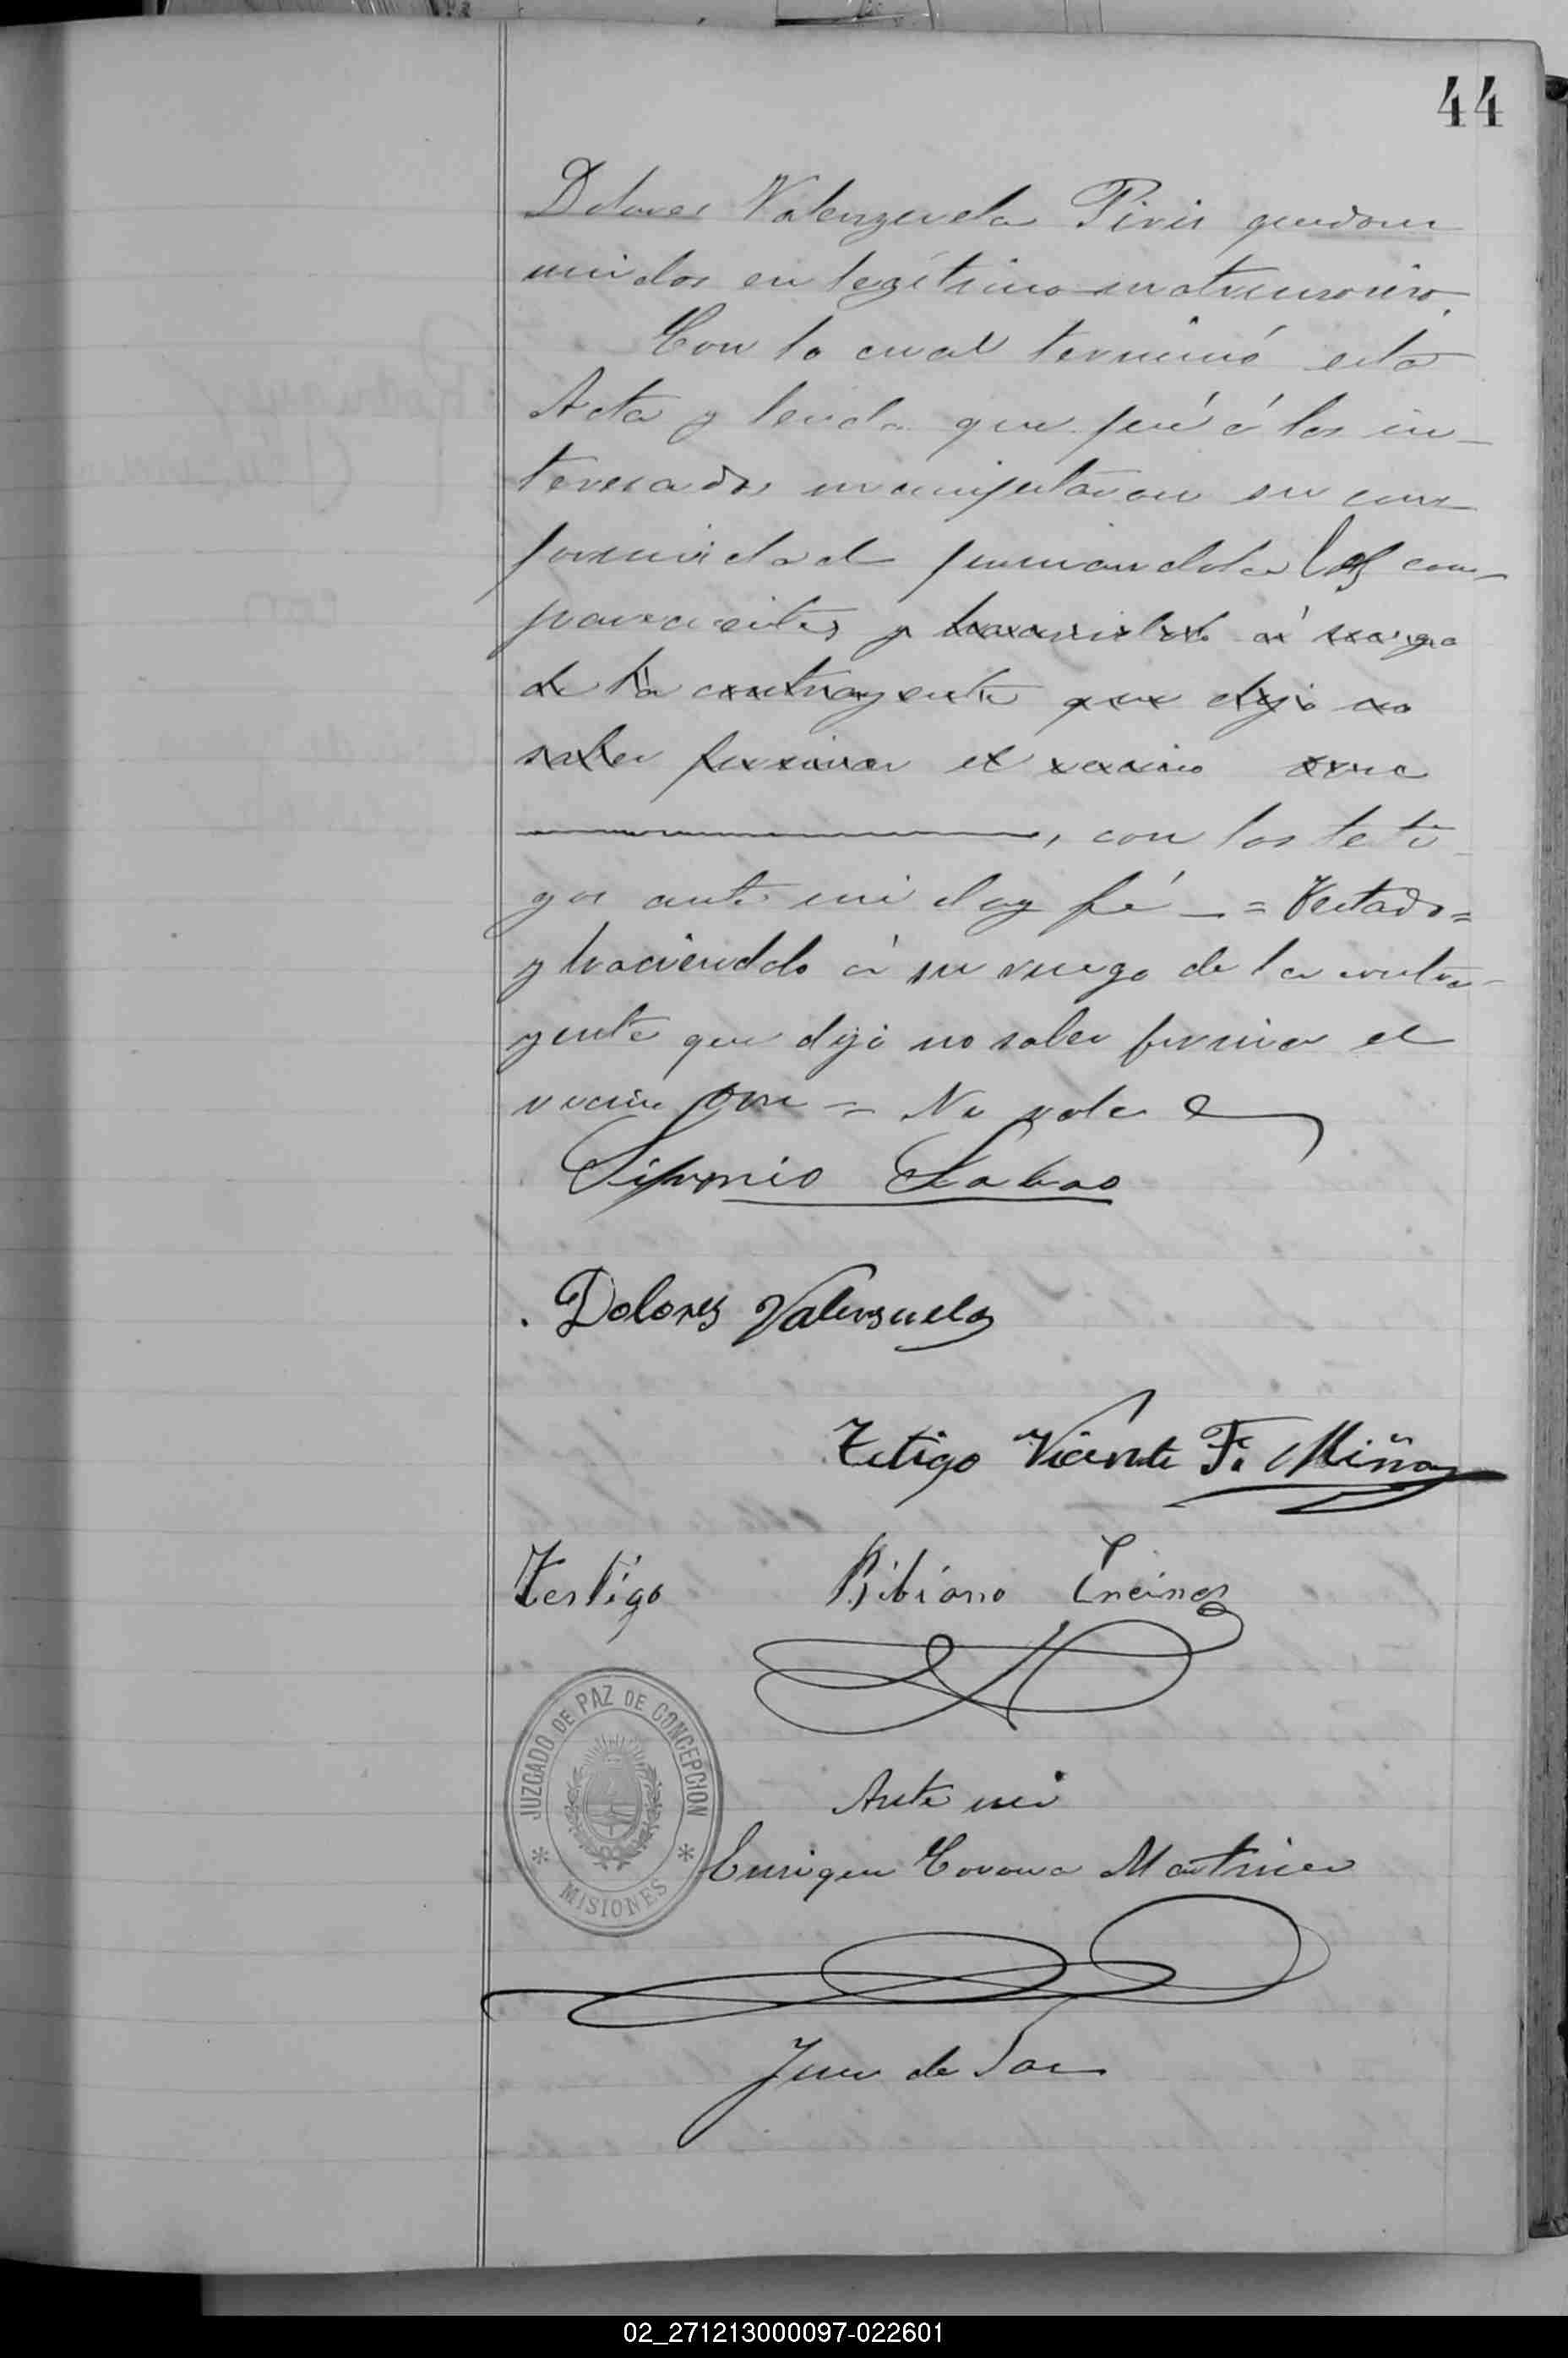 44
Dolores Valenzuela Piris quedan
unidos en legítimo matrimonio.
Con lo cual terminó esta
Acta y leida que fué á los in-
teresados manifestaron su con
formidad firmandola los com-
parecientes y haciendolo á ruego
de la contrayente que dijo no
saber firmar el vecino
, con los testi
gos ante mi doy fé - = Testado =
y haciendolo á su ruego de la contra-
yente que dijo no saber firmar el
vecino = No vale
Dolores Valensuela
Tetigo Vicente F. Miño
Testigo Bibiano Encina
JUZGADO DE PAZ DE CONCEPCION
MISIONES
Ante mi
Enrique Corona Martinez
Juez de Paz
02_271213000097-022601